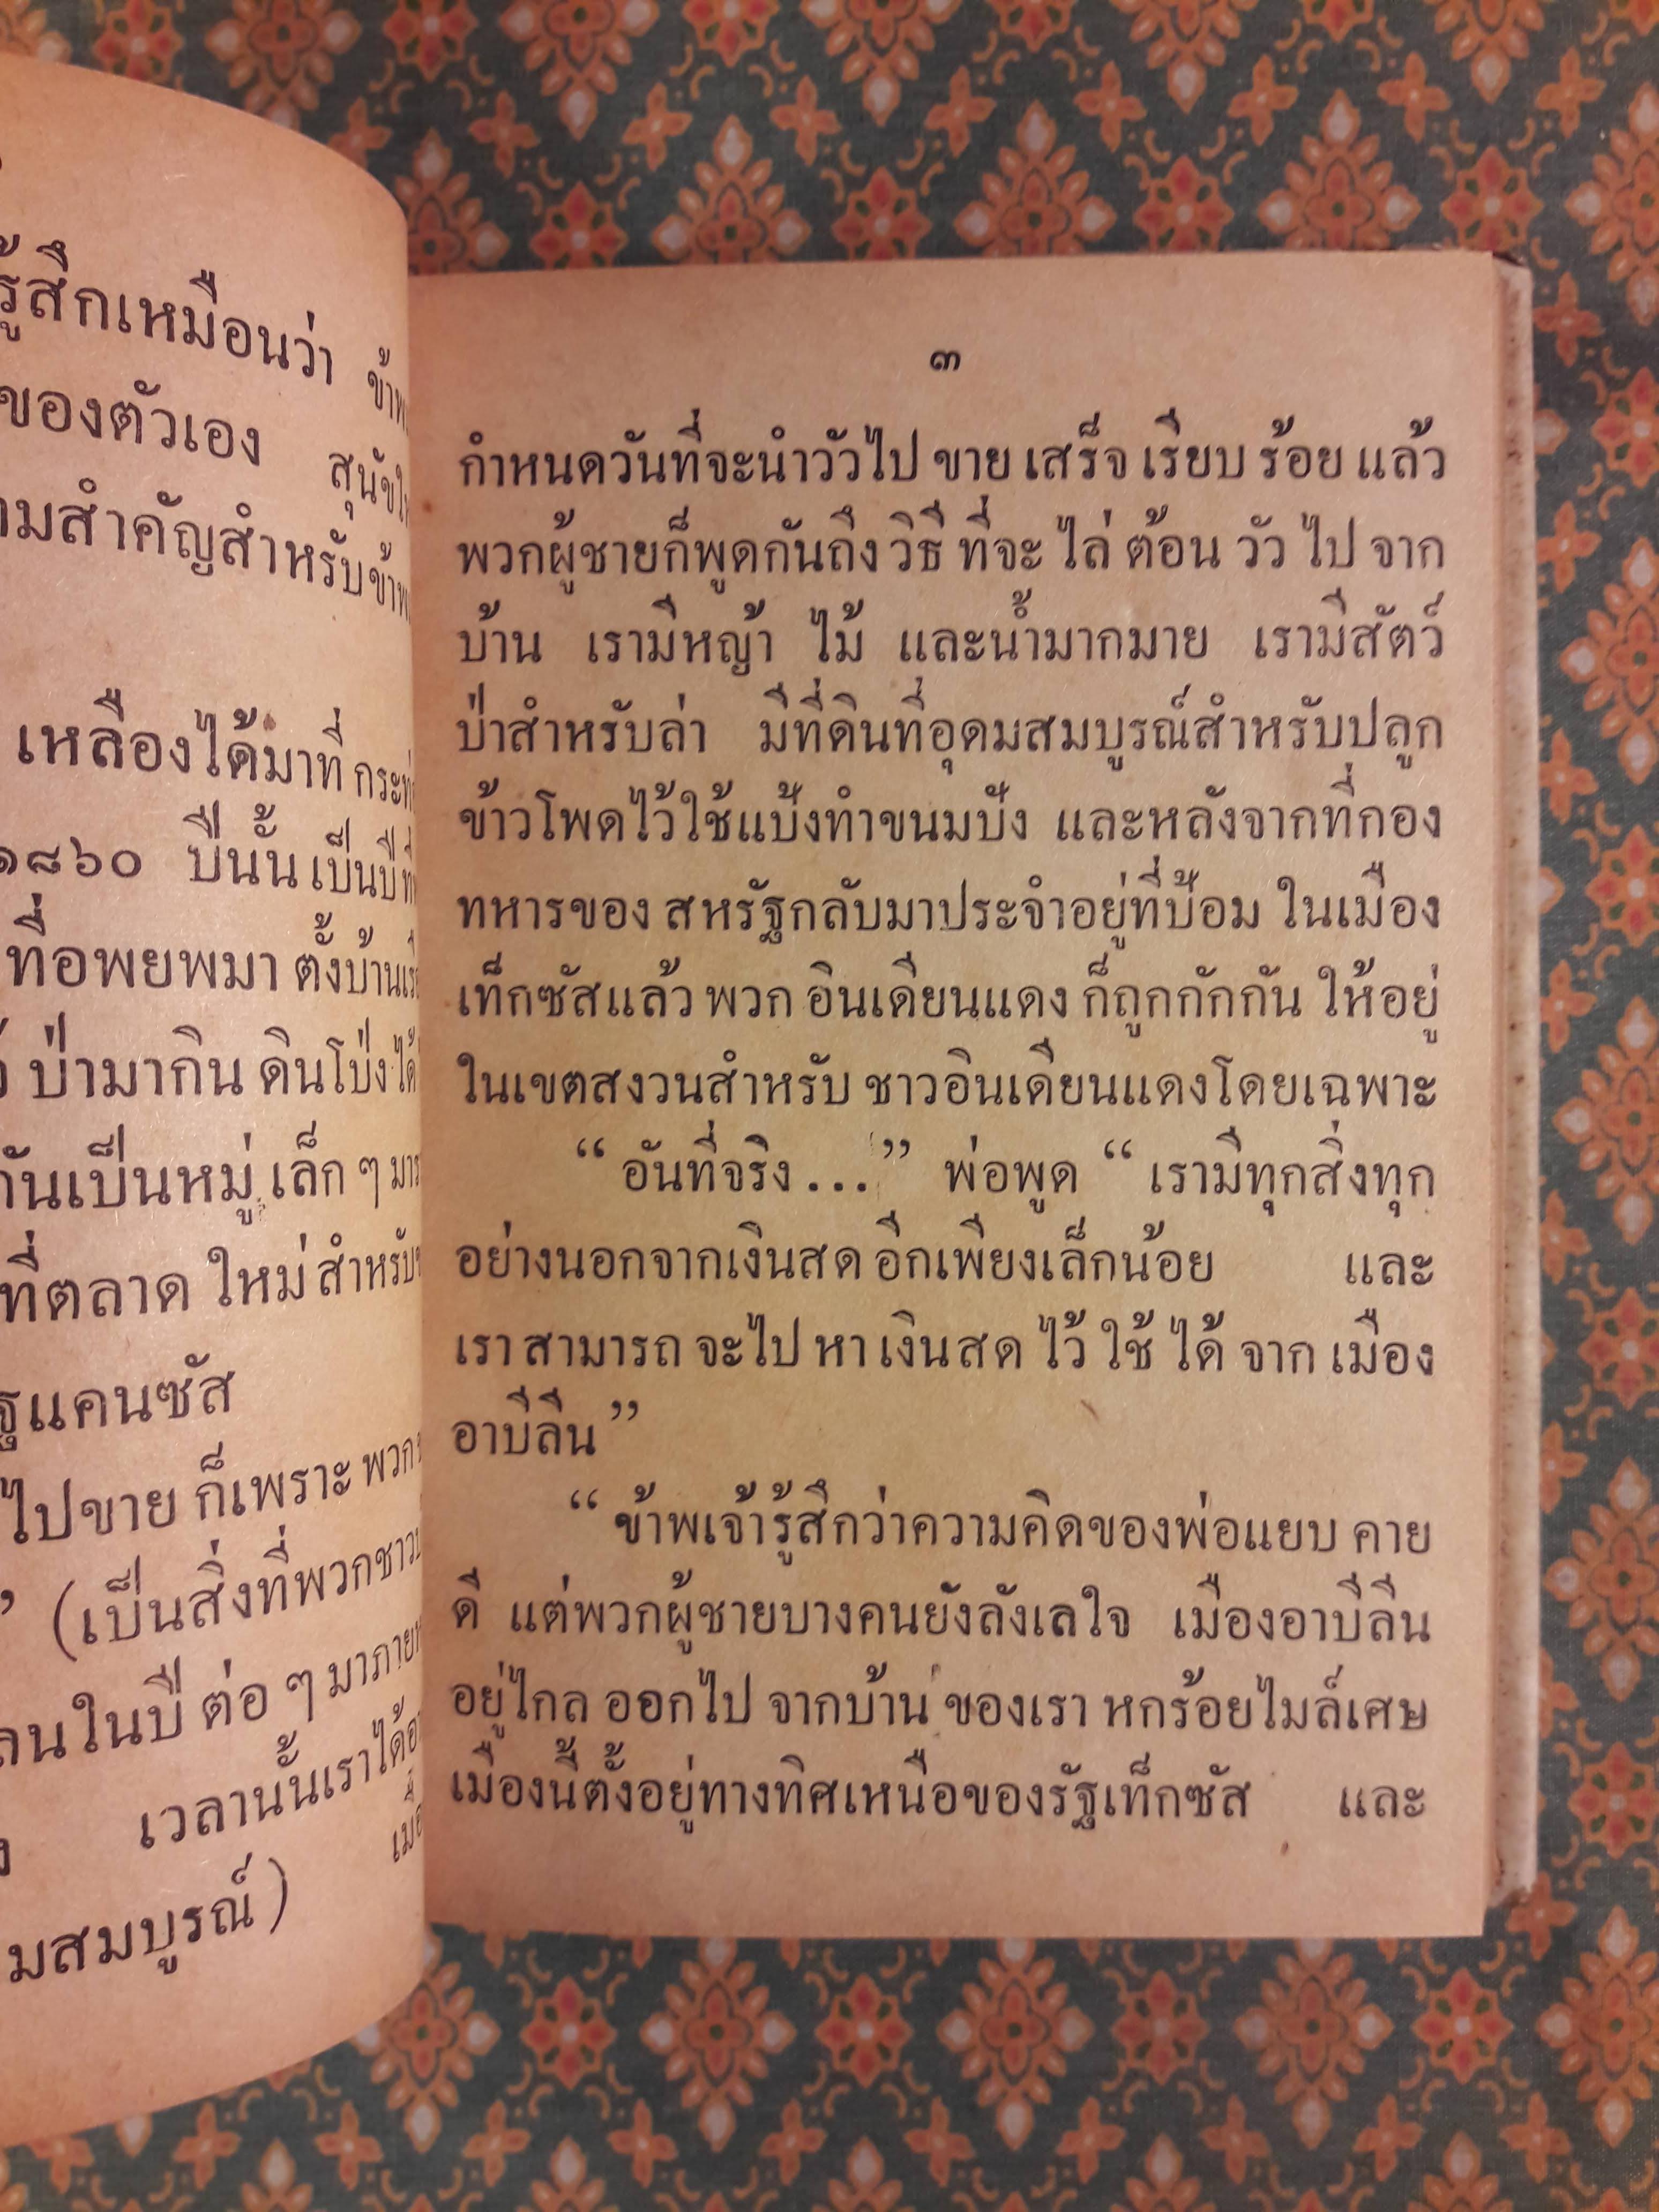 รู้สึกเหมือนว่า
ของตัวเอง
สำคัญสำหรับ
เหลืองได้มาที่
๑๘๖๐ ปีนั้น เป็นปี
ที่อพยพมา ตั้งบ้าน
ป่ามากิน ดินโป่ง
กันเป็นหมู่ เล็ก ๆ
ที่ตลาด ใหม่ สำหรับ
แคนซัส
ไปขาย ก็เพราะ พวก
(เป็นสิ่งที่พวก
ในปี ต่อ ๆ มา
เวลานั้นเราได้
สมบูรณ์)
๓
กำหนดวันที่จะนำวัวไป ขาย เสร็จ เรียบ ร้อย แล้ว
พวกผู้ชายก็พูดกันถึง วิธี ที่จะ ไล่ ต้อน วัว ไป จาก
บ้าน เรามีหญ้า ไม้ และน้ำมากมาย เรามีสัตว์
ป่าสำหรับล่า มีที่ดินที่อุดมสมบูรณ์สำหรับปลูก
ข้าวโพดไว้ใช้แป้งทำขนมปัง และหลังจากที่กอง
ทหารของ สหรัฐกลับมาประจำอยู่ที่ป้อม ในเมือง
เท็กซัสแล้ว พวก อินเดียนแดง ก็ถูกกักกัน ให้อยู่
ในเขตสงวนสำหรับ ชาวอินเดียนแดงโดยเฉพาะ
“ อันที่จริง . . . ” พ่อพูด “ เรามีทุกสิ่งทุก
อย่างนอกจากเงินสด อีกเพียงเล็กน้อย และ
เรา สามารถ จะไป หา เงินสด ไว้ ใช้ ได้ จาก เมือง
อาบีลีน ”
“ ข้าพเจ้ารู้สึกว่าความคิดของพ่อแยบ คาย
ดี แต่พวกผู้ชายบางคนยังลังเลใจ เมืองอาบีลีน
อยู่ไกล ออกไป จากบ้าน ของเรา หกร้อยไมล์เศษ
เมืองนี้ตั้งอยู่ทางทิศเหนือของรัฐเท็กซัส และ